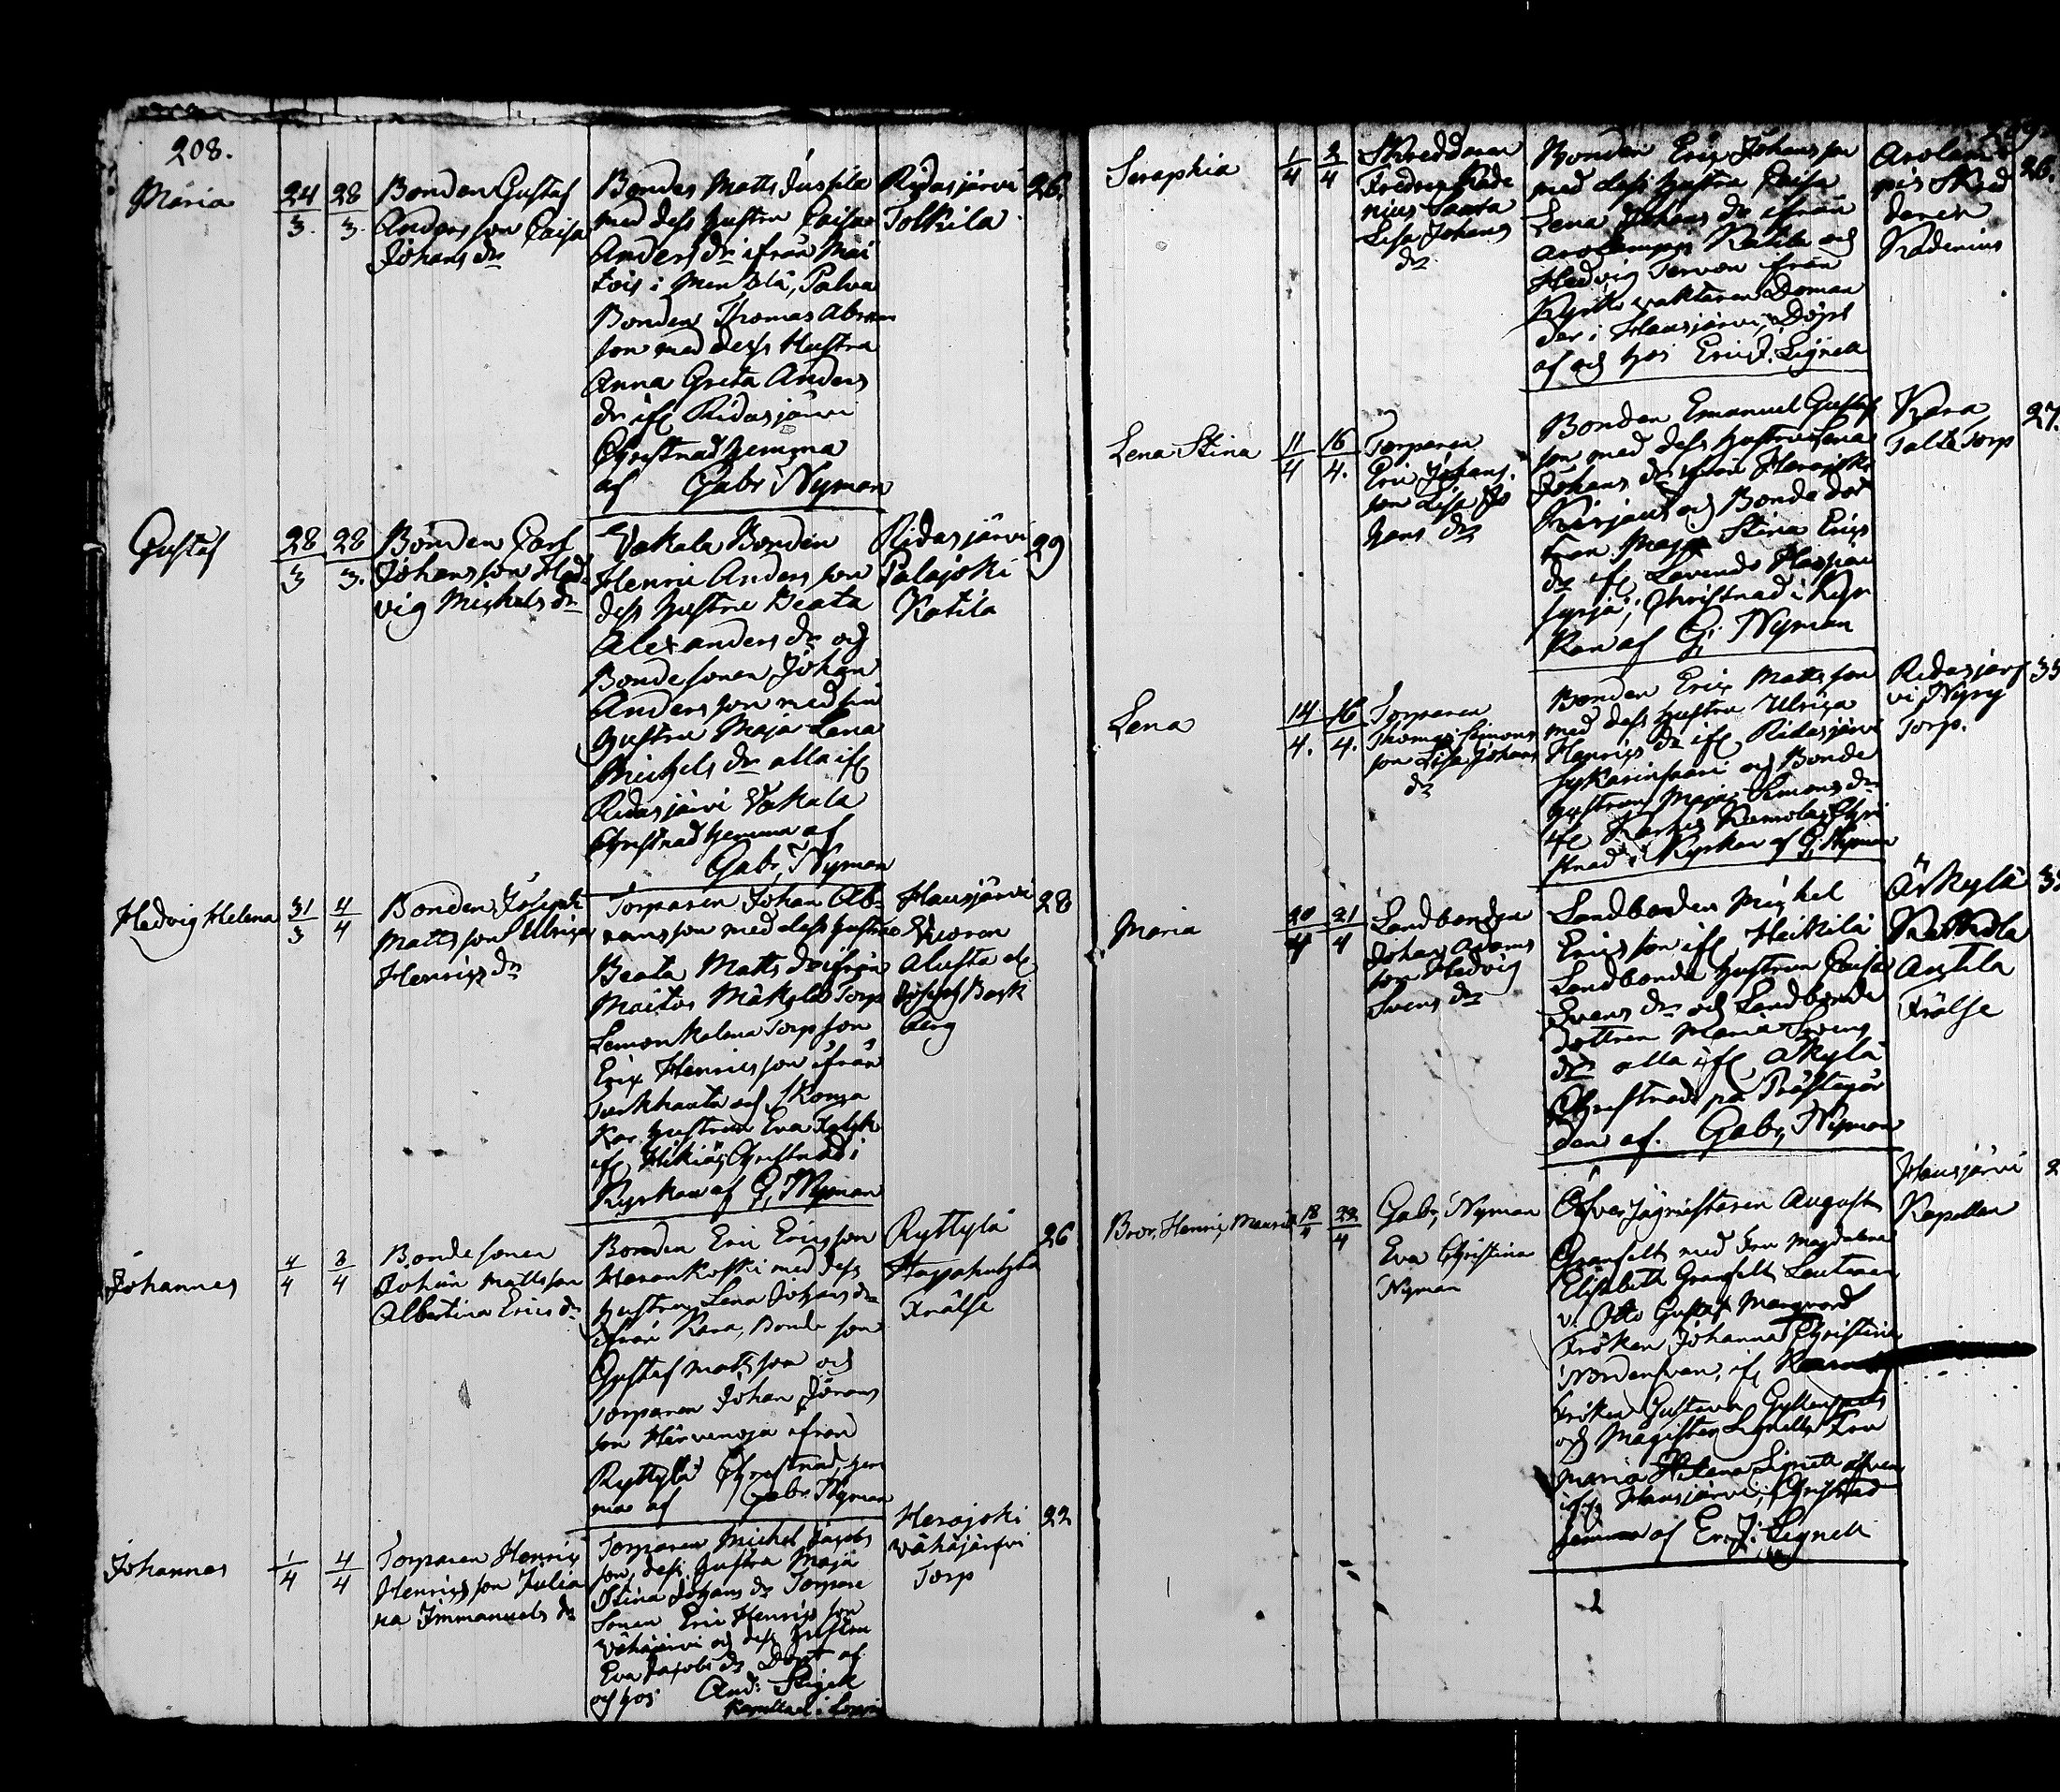 208.
Maria
24/3.
28/3.
Bonden Gustaf
Anders son Caisa
Johans dr
Bonden Matts Jussila
med dess hustru Caisa
Anders dr ifrån Mai
tois i Menkla, Palva
Bonden Thomas Abram
son med dess Hustru
Anna Greta Anders
dr if Ridasjärvi
Christnad hemma
af Gabr Nyman
Ridasjärvi
Tolkila
26.
Gustaf
28/3
28/3.
Bonden Carl
Johans son Hed
vig Michels dr
Vakala Bonden
Henric Anders son
dess hustru Beata
Alexanders dr och
Bondesonen Johan
Anders son med sin
hustru Maja Lena
Michels dr alla if
Ridasjärvi Vakala
Christnad hemma af
Gabr, Nyman
Ridasjärvi
Palajoki
Katila
29
Hedvig Helena
31/3
4/4
Bonden Joseph
Matts son Ulrica
Henrics dr
Torparen Johan Ab-
rams son med dess hustru
Beata Matts dr ifrån
Maitois Mäkylä Torp
Torp son
Eric Henrics son ifrån
Turkhauta och Skoma
kar hustrun Eva Falck
if Hikiä, Christnad i
Kyrkan af G, Nyman
Hausjärvi
Alusta
Joseph Back
berg
28
Johannes
4/4
8/4
Bonde sonen
Johan Matts son
Albertina Erics dr
Bonden Eric Erics son
Haran Koski med dess
hustru Lena Johans dr
ifrån Kara, Bonde son
Gustaf Matts son och
Torparen Johan Jörans
son Hirvenoja ifrån
Ryttylä Christnad hem
ma af Gabr Nyman
Ryttylä
Frälse
26
Johannes
1/4
4/4
Torparen Henric
Henrics son Julia
na Immanuels dr
Torparen Michel Jacobs
son, dess hustru Maja
Stina Johans dr Torpare
Sonen Eric Henrics son
Vähäjärvi och dess hustru
Eva Jacobs dr Döpt af
och hos And:
i Loppi
Herajoki
Vähäjärfvi
Torp
22
Seraphia
1/4
2/4
Skreddaren
Fredric Rade
nius Saara
Lisa Johans
dr
Bonden Eric Johans son
med dess hustru Caisa
Lena Johans dr ifrån
Arolampi Katila och
Hedvig Tervon ifrån
Kyrko vaktaren Doman
der i Hausjärvi, Döpt
af och hos Eric J. Lignell
Arolam
pis Skred
daren
Radenius
26.
Lena Stina
11/4
16/4.
Torparen
Eric Johans
son Lisa Jo
hans dr
Bonden Emanuel Gustaf
son med dess hustru Lena
Johans dr ifrån Herajoki
och Bonde dot
tran Maja Stina Erics
dr if
Christnad i Kyr
kan af G, Nyman
Kara
Torp
27.
Lena
14/4.
16/4.
Torparen
Thomas Simons
son Lisa Johans
dr
Bonden Eric Matts son
med dess hustru Ulrica
Henrics dr if Ridasjärvi
och Bonde
hustrun Maja Simons dr
if Ramola, Chri
stnad i Kyrkan af G, Nyman
Ridasjärf
vi Nyby
Torp.
Maria
20/4
21/4
Landbonden
Johan Adams
son Hedvig
Svens dr
Landbonden Michel
Erics son if Heikilä
Landbonde hustrun Caisa
Svens dr och Landbonde
dottren Maria Svens
dr alla if
Christnad på Prästegår
den af. Gabr, Nyman
Anttila
Frälse
Bror, Henric, Mauritz
18/4
22/4
Gabr, Nyman
Eva Christina
Nyman
Öfverjägmästaren August
Granfelt med Fru Magdalena
Elisabeth Granfelt, Leutnan
v. Otto Gustaf
Fröken Johanna Christina
Nordensvan, if
Fröken Gustava
och Magister Lignells Fru
Maria Helena Lignell
ifrån Hausjärvi, Christnad
hemma af Eric J: Lignell
Hausjärvi
Kapellan
2